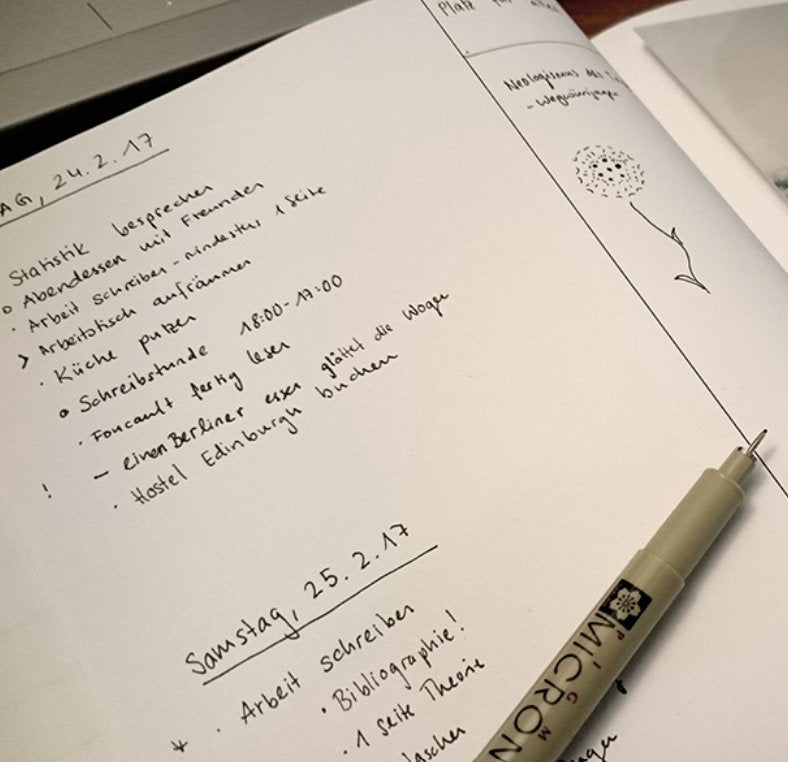 AG, 24.2.17
Statistik besprechen
o Abendessen mit Freunden
· Arbeit schreiben - mindestens 1 Seite
> Arbeitstisch aufräumen
· Küche putzen
o Schreibstunde 18:00-17:00
· Foucault fertig lesen
! – einen Berliner essen glättet die Wogen
· Hostel Edinburgh buchen
Samstag, 25.2.17
* · Arbeit schreiben
· Bibliographie!
· 1 Seite Theorie
Platz für alles
Neologismus des
PIGMA
MICRON